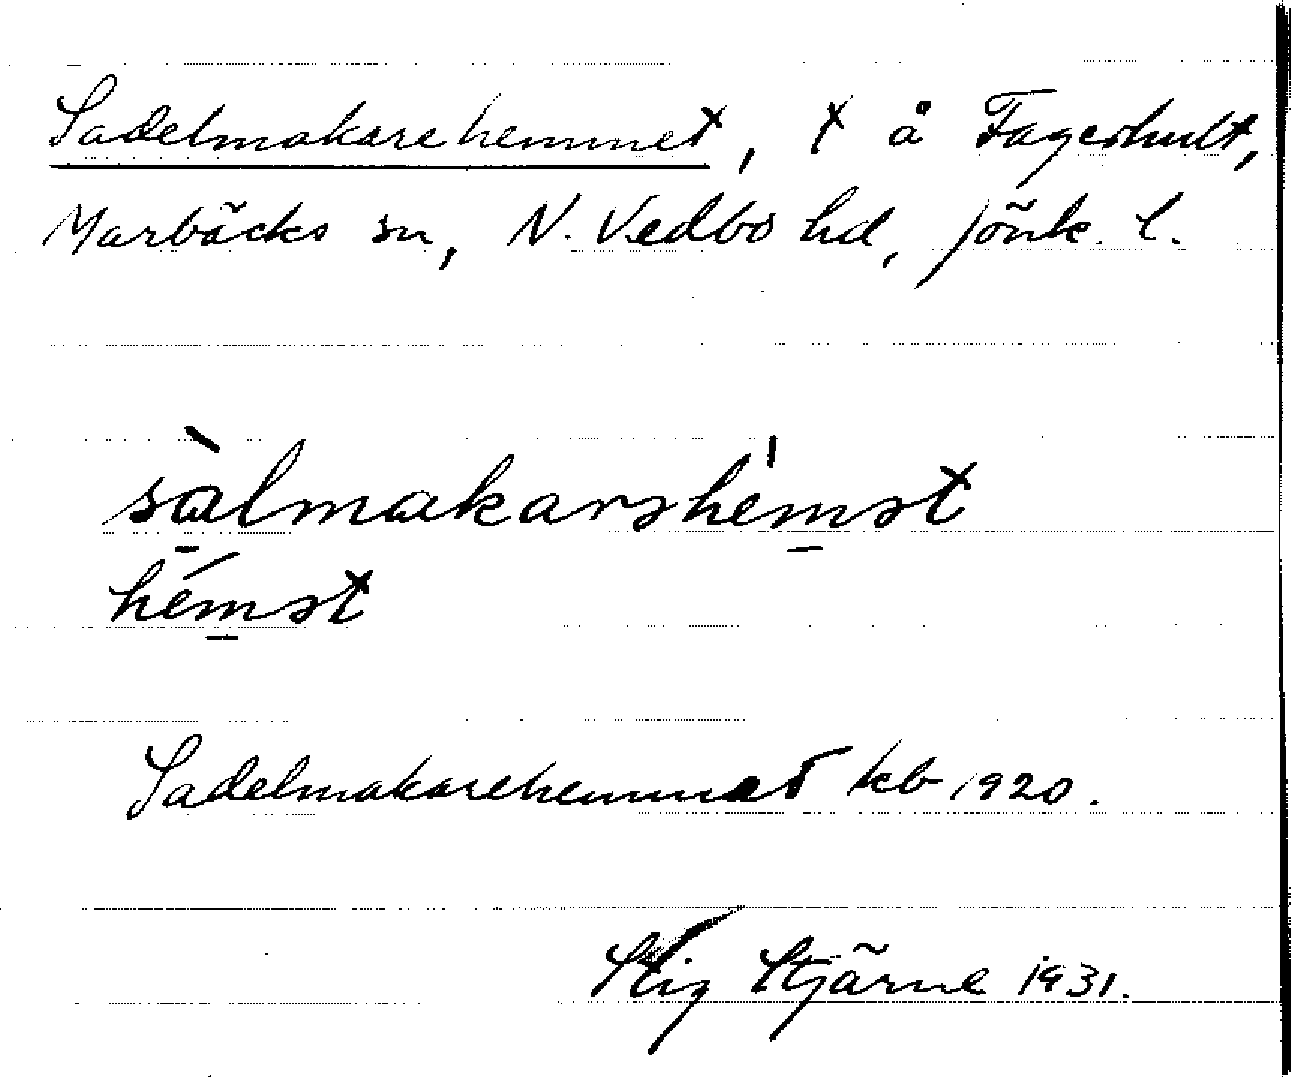 Sadelmakarehemmet, † å Fagerhult,
Marbäcks sn, N. Vedbo hd, Jönk. l.
sàlmakarshémst
hémst
Sadelmakarehemmet kb 1920.
Stig Stjärne 1931.